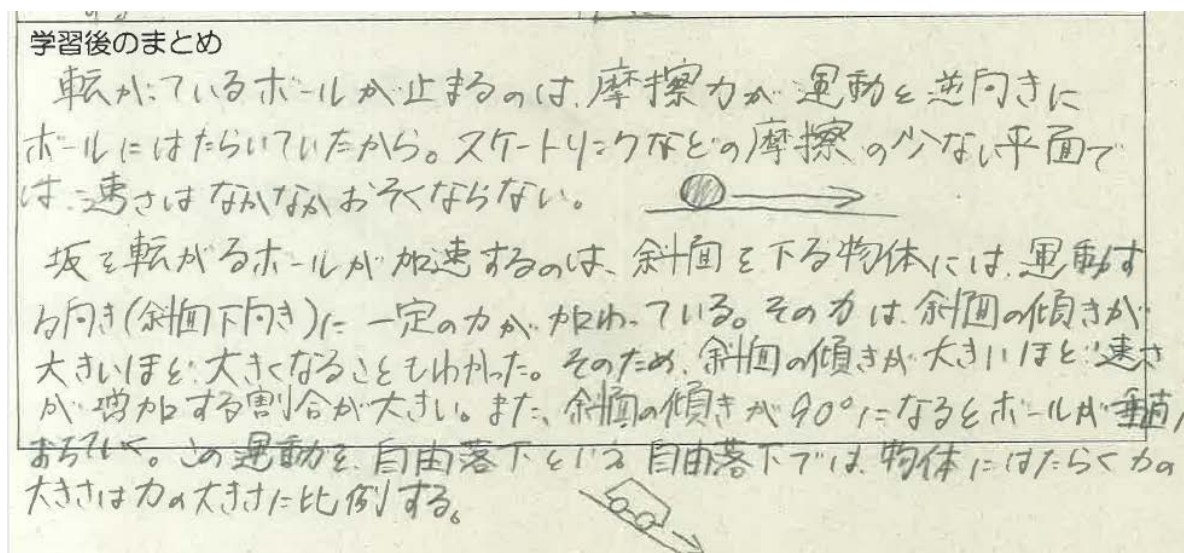 学習後のまとめ
転がっているボールが止まるのは、摩擦力が運動と逆向きに
ボールにはたらいていたから。スケートリンクなどの摩擦の少ない平面で
は、速さはなかなかおそくならない。
坂を転がるボールが加速するのは、斜面を下る物体には、運動す
る向き(斜面下向き)に一定の力が加わっている。その力は、斜面の傾きが
大きいほど大きくなることもわかった。そのため、斜面の傾きが大きいほど速さ
が増加する割合が大きい。また、斜面の傾きが90°になるとボールが垂直に
おちていく。この運動を、自由落下という。自由落下では、物体にはたらく力の
大きさは力の大きさに比例する。